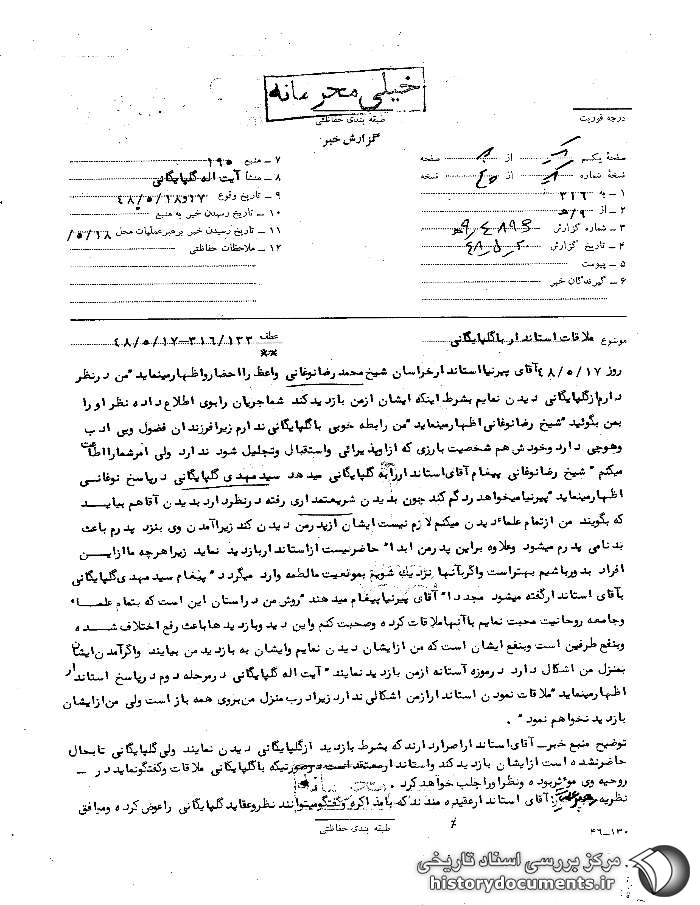 خیلی محرمانه
درجه فوریت
طبقه بندی حفاظتی
گزارش خبر
صفحهٔ یکم از صفحه
نسخهٔ شماره از نسخه
۱ ـ به ۳۱۶
۲ ـ از ۹/ه
۳ ـ شماره گزارش
۴ ـ تاریخ گزارش
۵ ـ پیوست
۶ ـ گیرندگان خبر
۷ ـ منبع ۱۹۰
۸ ـ منشأ آیت اله گلپایگانی
۹ ـ تاریخ وقوع ۱۷و۴۸/۵/۱۸
۱۰ ـ تاریخ رسیدن خبر به منبع
۱۱ ـ تاریخ رسیدن خبر برهبر عملیات محل ۵/۱۸/
۱۲ ـ ملاحظات حفاظتی
موضوع ملاقات استاندار با گلپایگانی
عطف ۳۱۶/۱۳۳-۴۸/۵/۱۷
روز ۴۸/۵/۱۷ آقای پیرنیا استاندار خراسان شیخ محمد رضا نوغانی واعظ را احضار و اظهار مینماید "من در نظر
دارم از گلپایگانی دیدن نمایم بشرط اینکه ایشان از من بازدید کند شما جریان را بوی اطلاع داده نظر او را
بمن بگوئید" شیخ رضا نوغانی اظهار مینماید "من رابطه خوبی با گلپایگانی ندارم زیرا فرزندان فضول وبی ادب
وهوچی دارد وخودش هم شخصیت بارزی که از او پذیرائی واستقبال وتجلیل شود ندارد ولی امر شما را اطاعت
میکنم" شیخ رضا نوغانی پیغام آقای استاندار را به گلپایگانی میدهد سید مهدی گلپایگانی در پاسخ نوغانی
اظهار مینماید "پیرنیا میخواهد رد گم کند چون بدیدن شریعتمداری رفته در نظر دارد بدیدن آقا هم بیاید
که بگویند من از تمام علماء دیدن میکنم لازم نیست ایشان از پدر من دیدن کند زیرا آمدن وی بنزد پدرم باعث
بدنامی پدرم میشود وعلاوه براین پدر من ابدا" حاضر نیست از استاندار بازدید نماید زیرا هرچه ما از این
افراد بدور باشیم بهتر است واگر بآنها نزدیک شویم بموقعیت ما لطمه وارد میگردد" پیغام سید مهدی گلپایگانی
بآقای استاندار گفته میشود مجددا" آقای پیرنیا پیغام میدهند "روش من در استان این است که بتمام علما"
وجامعه روحانیت محبت نمایم با آنها ملاقات کرده وصحبت کنم واین دید وبازدیدها باعث رفع اختلاف شده
وبنفع طرفین است وبنفع ایشان است که من از ایشان دیدن نمایم وایشان به بازدید من بیایند واگر آمدن ایشان
بمنزل من اشکال دارد در موزه آستانه از من بازدید نمایند" آیت اله گلپایگانی در مرحله دوم در پاسخ استاندار
اظهار مینماید "ملاقات نمودن استاندار از من اشکالی ندارد زیرا درب منزل من بروی همه باز است ولی من از ایشان
بازدید نخواهم نمود".
توضیح منبع خبر ـ آقای استاندار اصرار دارند که بشرط بازدید از گلپایگانی دیدن نمایند ولی گلپایگانی تا بحال
حاضر نشده است از ایشان بازدید کند واستاندار معتقد است در صورتیکه با گلپایگانی ملاقات وگفتگو نماید در ـ
روحیه وی موثر بوده ونظر او را جلب خواهد کرد.
نظریه آقای استاندار عقیده مندند که با مذاکره وگفتگو میتوانند نظر وعقاید گلپایگانی را عوض کرده وموافق
طبقه بندی حفاظتی
۴۶-۱۳۰
مرکز بررسی اسناد تاریخی
historydocuments.ir